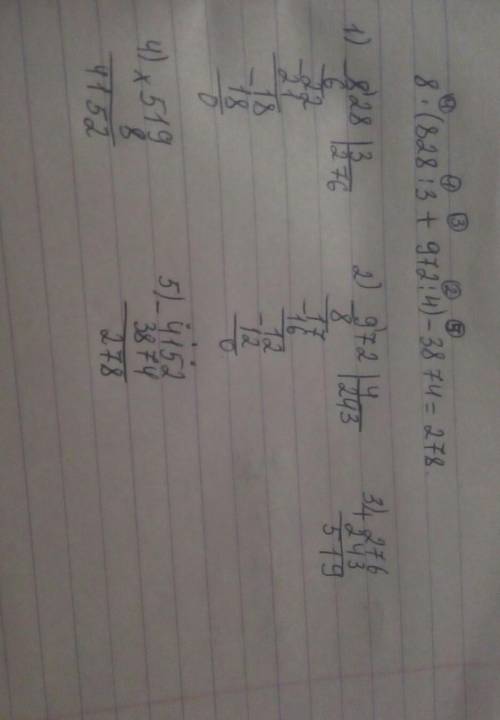 ④ ① ③ ② ⑤
8·(828:3 + 972:4) - 3874 = 278.
1) -828 |3
6 276
-22
21
-18
18
0
2) -972 |4
8 243
-17
16
-12
12
0
3) + 276
243
519
4) x 519
8
4152
5) - 4152
3874
278